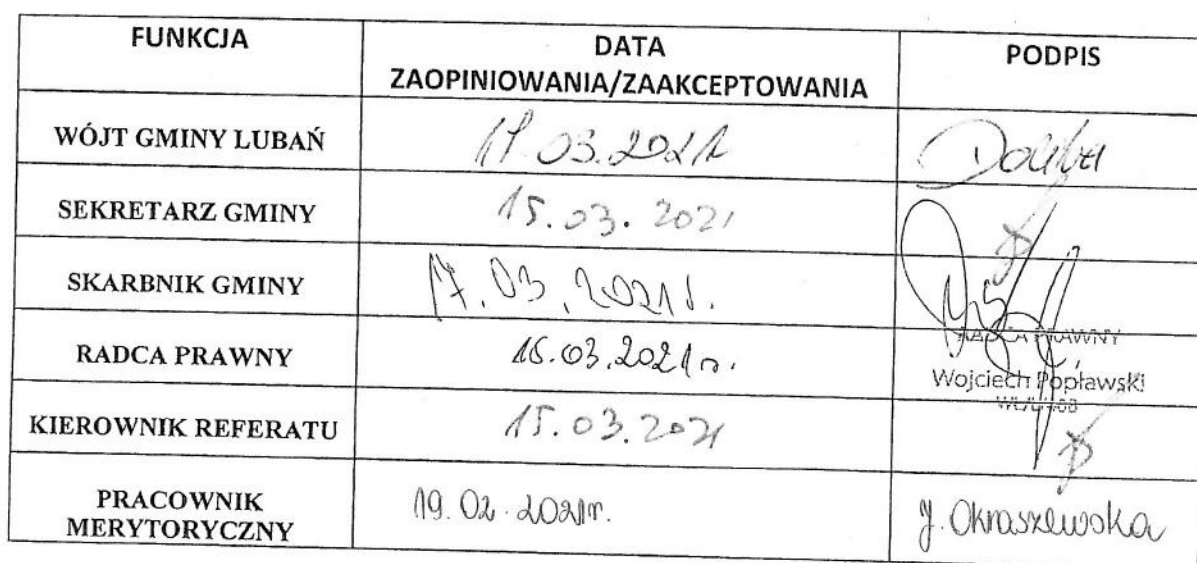 FUNKCJA
DATA
ZAOPINIOWANIA/ZAAKCEPTOWANIA
PODPIS
WÓJT GMINY LUBAŃ
03.2021
SEKRETARZ GMINY
15.03.2021
SKARBNIK GMINY
17.03.2021r.
RADCA PRAWNY
03.2021r.
RADCA PRAWNY
Wojciech Popławski
KIEROWNIK REFERATU
15.03.2021
PRACOWNIK
MERYTORYCZNY
19.02.2021r.
J. Okraszewska